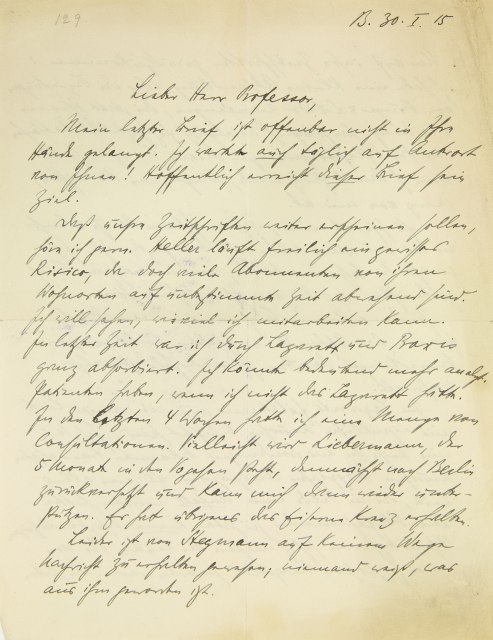 129
B. 30. I. 15
Lieber Herr Professor,
Mein letzter Brief ist offenbar nicht in Ihre
Hände gelangt. Ich wartete auch täglich auf Antwort
von Ihnen! Hoffentlich erreicht dieser Brief sein
Ziel.
Daß unsre Zeitschriften weiter erscheinen sollen,
höre ich gern. Heller läuft freilich ein gewisses
Risico, da doch viele Abonnenten von ihren
Wohnorten auf unbestimmte Zeit abwesend sind.
Ich will sehen, wieviel ich mitarbeiten kann.
In letzter Zeit war ich durch Lazarett und Praxis
ganz absorbiert. Ich könnte bedeutend mehr analyt.
Patienten haben, wenn ich nicht das Lazarett hätte.
In den letzten 4 Wochen hatte ich eine Menge von
Consultationen. Vielleicht wird Liebermann, der
5 Monate in den Vogesen steht, demnächst nach Berlin
zurückversetzt und kann mich dann wieder unter-
stützen. Er hat übrigens das Eiserne Kreuz erhalten.
Leider ist von Stegmann auf keinem Wege
Nachricht zu erhalten gewesen; niemand weiß, was
aus ihm geworden ist.